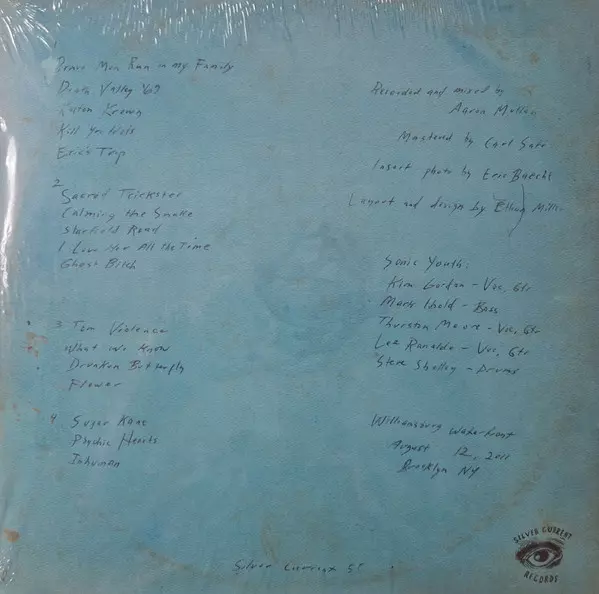 1
Brave Men Run in my Family
Death Valley '69
Kotton Krown
Kill Yr Idols
Eric's Trip
2
Sacred Trickster
Calming the Snake
Starfield Road
I Love Her All the Time
Ghost Bitch
3 Tom Violence
What we Know
Drunken Butterfly
Flower
4 Sugar Kane
Psychic Hearts
Inhuman
Recorded and mixed by
Aaron Mullan
Mastered by Carl Saff
Insert photo by Eric Baecht
Layout and design by Ethan Miller
Sonic Youth:
Kim Gordon - Voc, Gtr
Mark Ibold - Bass
Thurston Moore - Voc, Gtr
Lee Ranaldo - Voc, Gtr
Steve Shelley - Drums
Williamsburg Waterfront
August 12, 2011
Brooklyn NY
Silver Current 55
SILVER CURRENT
RECORDS